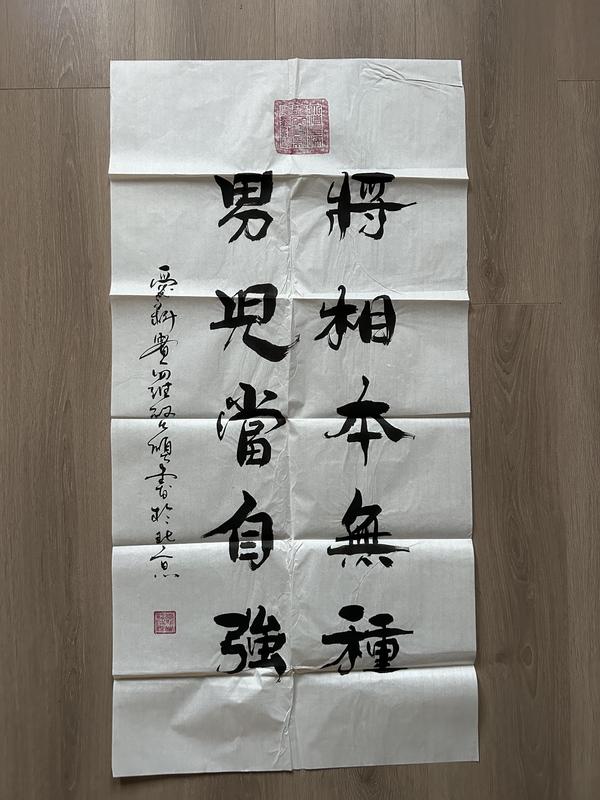 將相本無種
男兒當自強
愛新覺羅啟碩書於北京